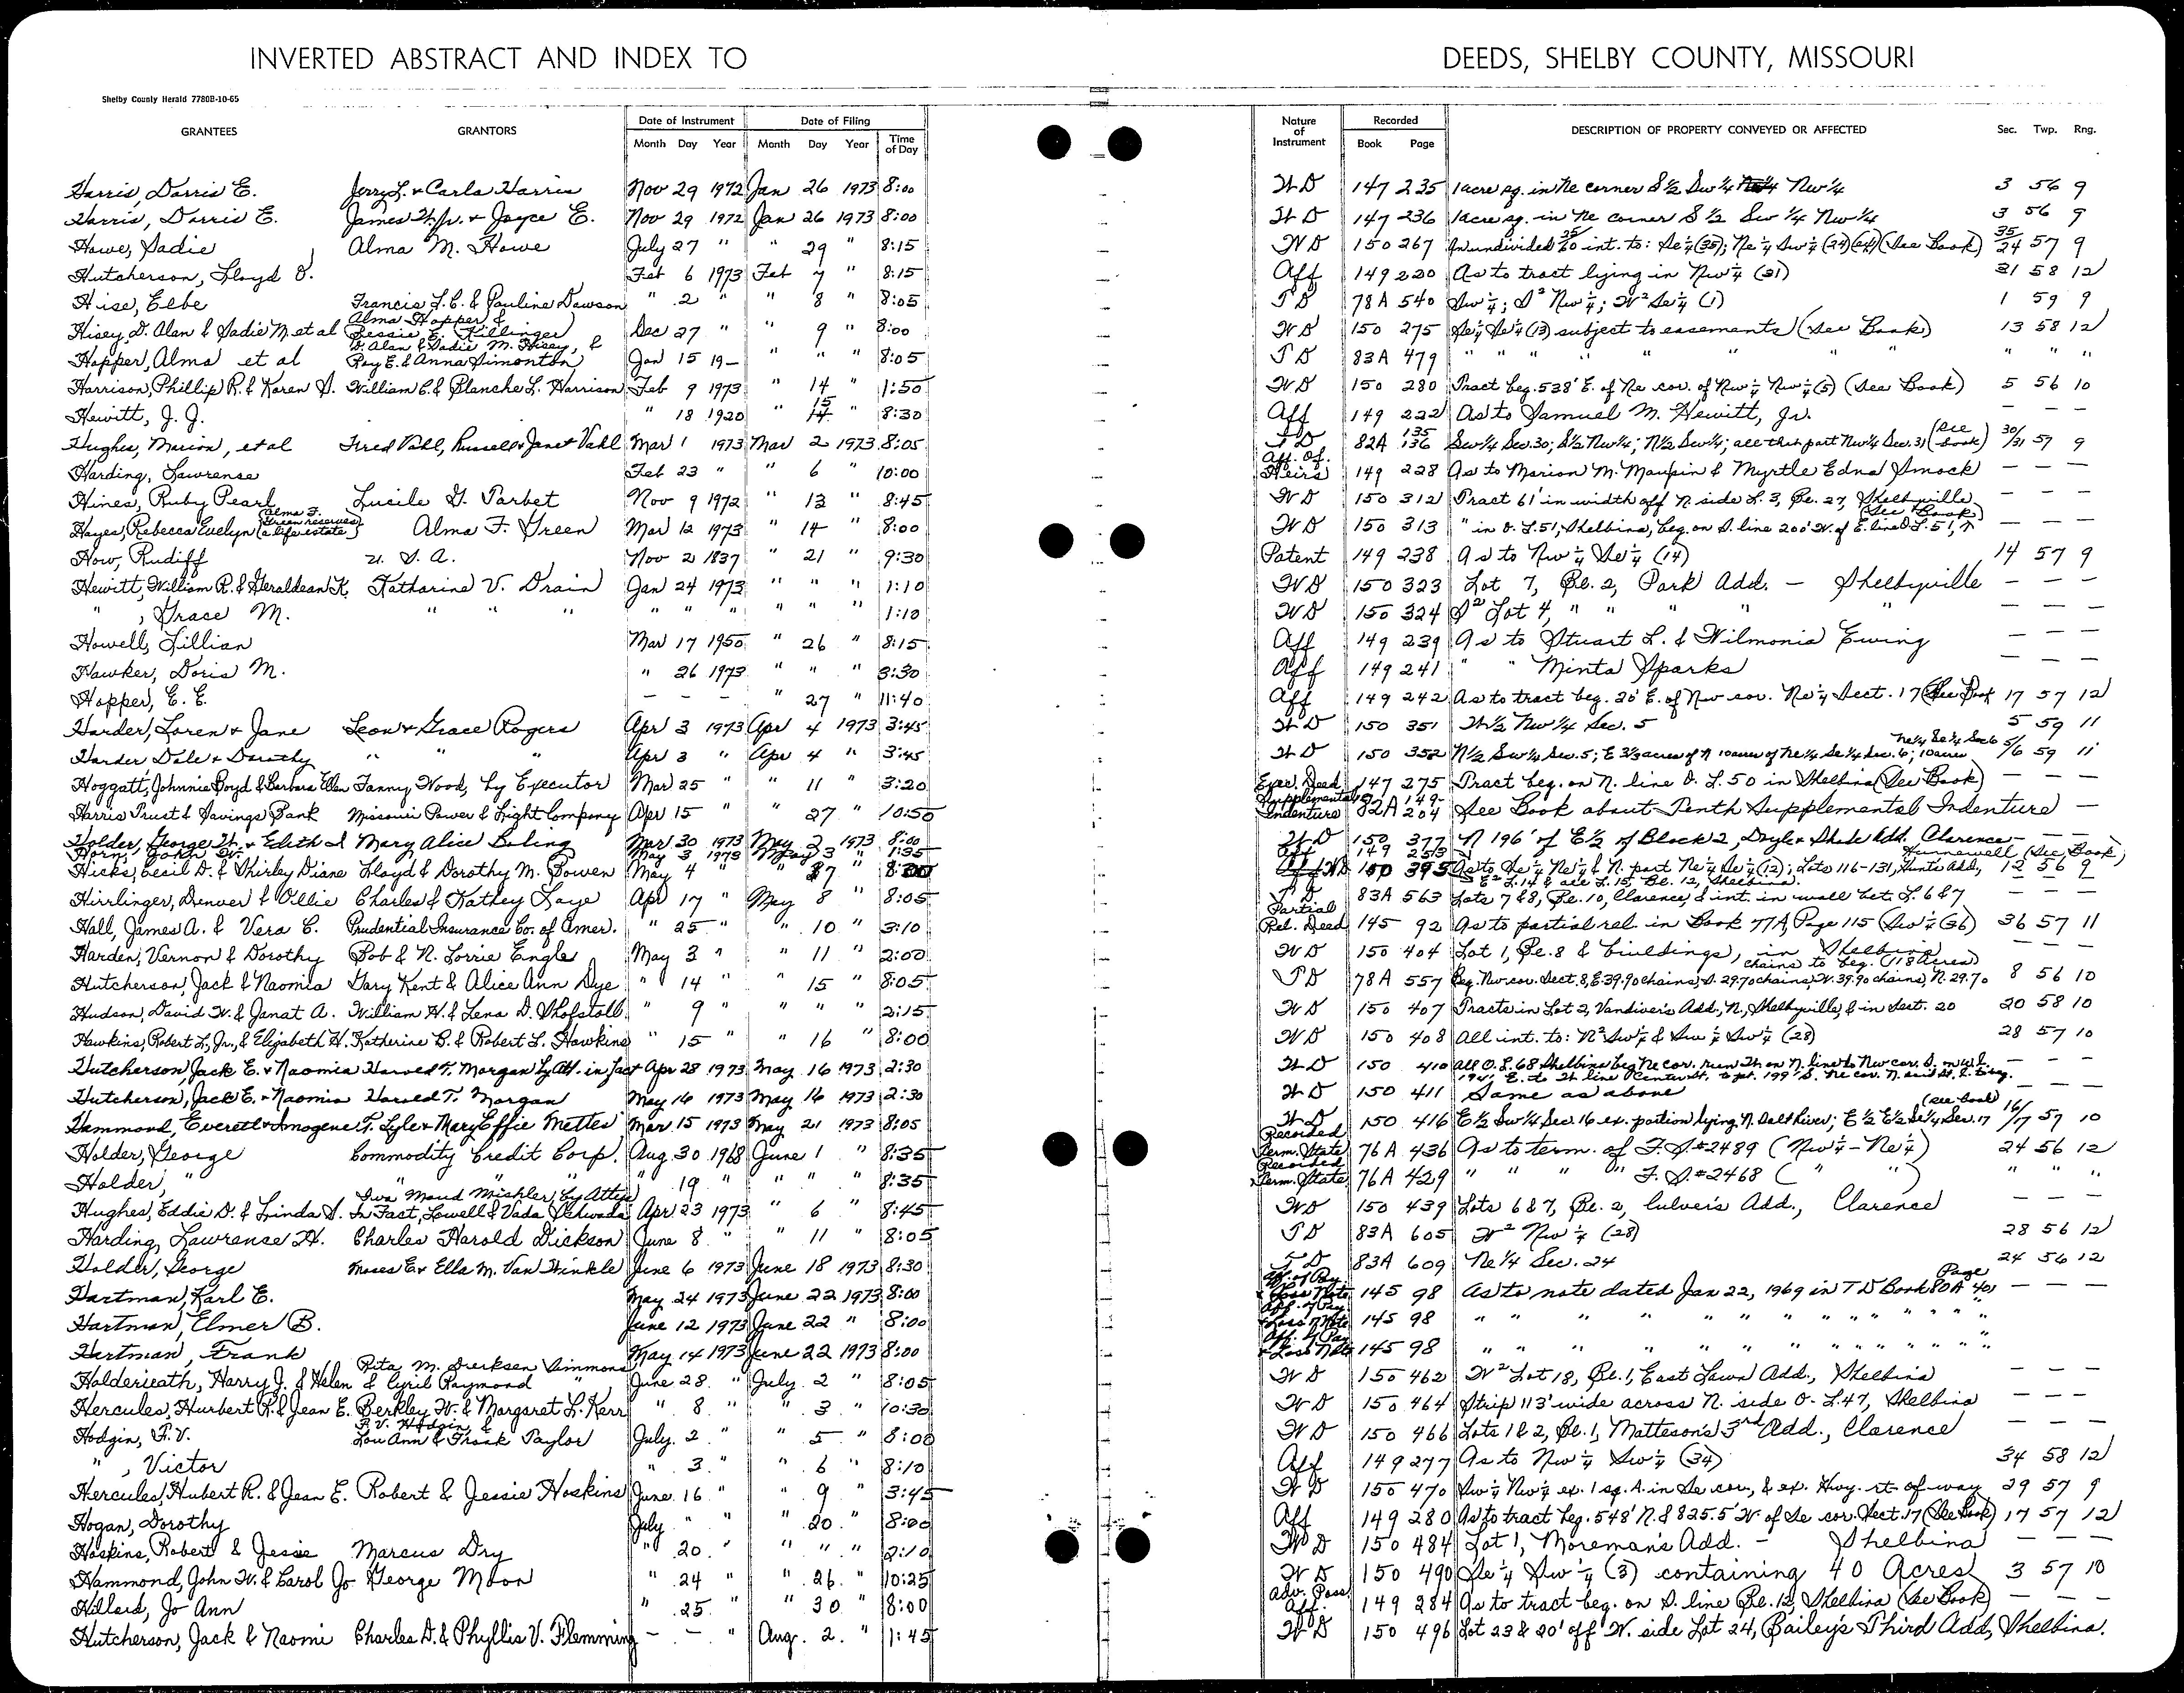 INVERTED ABSTRACT AND INDEX TO DEEDS, SHELBY COUNTY, MISSOURI
Shelby County Herald 7780B-10-65
GRANTEES GRANTORS Date of Instrument Month Day Year Date of Filing Month Day Year Time of Day Nature of Instrument Recorded Book Page DESCRIPTION OF PROPERTY CONVEYED OR AFFECTED Sec. Twp. Rng.
Harris, Darris E. Jerry L. & Carla Harris Nov 29 1972 Jan 26 1973 8:00 W D 147 235 1 acre sq. in Ne corner S 1/2 Sw 1/4 Nw 1/4 3 56 9
Harris, Darris E. James W. Jr. & Joyce E. Nov 29 1972 Jan 26 1973 8:00 W D 147 236 1 acre sq. in Ne corner S 1/2 Sw 1/4 Nw 1/4 3 56 9
Howe, Sadie Alma M. Howe July 27 " " 29 " 8:15 W D 150 267 An undivided int. to: Se 1/4 (35); Ne 1/4 Sw 1/4 (24) (See Book) 35/24 57 9
Hutcherson, Lloyd O. Feb 6 1973 Feb 7 " 8:15 Aff 149 220 As to tract lying in Nw 1/4 (31) 31 58 12
Hise, Elbe Francis L.C. & Pauline Dawson " 2 " " 8 " 8:05 T D 78A 540 Sw 1/4; S² Nw 1/4; W² Se 1/4 (1) 1 59 9
Hisey, D. Alan & Sadie M. et al Alma Hopper & Bessie E. Killinger Dec 27 " " 9 " 8:00 W D 150 275 Se 1/4 Se 1/4 (13) subject to easements (See Book) 13 58 12
Hopper, Alma et al D. Alan & Sadie M. Hisey, & Roy E. & Anna Simonton Jan 15 19- " " " 8:05 T D 83A 479 " " " " " " " " " " "
Harrison, Phillip R. & Karen S. William C. & Blanche L. Harrison Feb 9 1973 " 14 " 1:50 W D 150 280 Tract beg. 538' E. of Ne cor. of Nw 1/4 Nw 1/4 (5) (See Book) 5 56 10
Hewitt, J. J. " 18 1920 " 15 " 8:30 Aff 149 222 As to Samuel M. Hewitt, Jr. — — —
Hughes, Marion, et al Fred Vahl, Russell & Janet Vahl Mar 1 1973 Mar 2 1973 8:05 T D 82A 135 136 Sw 1/4 Sec. 30; S 1/2 Nw 1/4; N 1/2 Sw 1/4; all that part Nw 1/4 Sec. 31 (See book) 30/31 57 9
Harding, Lawrense Feb 23 " " 6 " 10:00 Aff. Of. Heirs 149 228 As to Marion M. Maupin & Myrtle Edna Smock — — —
Hines, Ruby Pearl Lucile G. Tarbet Nov 9 1972 " 13 " 8:45 W D 150 312 Tract 61' in width off N. side L. 3, Bl. 27, Shelbyville (See Book) — — —
Hayes, Rebecca Evelyn (Alma F. Green reserves a life estate) Alma F. Green Mar 12 1973 " 14 " 8:00 W D 150 313 " in O. L. 51, Shelbina, beg. on S. line 200' W. of E. line O. L. 51, — — —
How, Rudiff U. S. A. Nov 2 1837 " 21 " 9:30 Patent 149 238 As to Nw 1/4 Se 1/4 (14) 14 57 9
Hewitt, William R. & Geraldean K. Katharine V. Drain Jan 24 1973 " " " 1:10 W D 150 323 Lot 7, Bl. 2, Park Add. — Shelbyville — — —
" , Grace M. " " " " " " " " " 1:10 W D 150 324 S² Lot 4, " " " " — — —
Howell, Lillian Mar 17 1950 " 26 " 8:15 Aff 149 239 As to Stuart L. & Wilmonia Ewing — — —
Hawker, Doris M. " 26 1973 " " " 3:30 Aff 149 241 " " Minta Sparks — — —
Hopper, E. E. — — — " 27 " 11:40 Aff 149 242 As to tract beg. 20' E. of Nw cor. Ne 1/4 Sect. 17 (See Book 17 57 12
Harder, Loren & Jane Leon & Grace Rogers Apr 3 1973 Apr 4 1973 3:45 W D 150 351 W 1/2 Nw 1/4 Sec. 5 5 59 11
Harder Dale & Dorothy " " " Apr 3 " Apr 4 " 3:45 W D 150 352 N 1/2 Sw 1/4 Sec. 5; E 3 1/3 acres of N 10 acres of Ne 1/4 Se 1/4 Sec. 6; 10 acres Ne 1/4 Se 1/4 Sec 6 5/6 59 11
Hoggatt, Johnnie Boyd & Barbara Ellen Fanny Wood, by Executor Mar 25 " " 11 " 3:20 Exec. Deed 147 275 Tract beg. on N. line O. L. 50 in Shelbina (See Book) — — —
Harris Trust & Savings Bank Missouri Power & Light Company Apr 15 " " 27 " 10:50 Supplemental Indenture 82A 149-204 See Book about Tenth Supplemental Indenture —
Holder, George W. & Edith I Mary Alice Boling Mar 30 1973 May 3 1973 8:00 W D 150 377 N 196' of E 1/2 of Block 2, Doyle & Shade Add. Clarence — —
Horn, John May 3 1973 May 3 " 1:35 Aff 149 253 As to Se 1/4 Ne 1/4 & N. part Ne 1/4 Se 1/4 (12); Lots 116-131, Hunts Add., Hunnewell (See Book) 12 56 9
Hicks, Cecil D. & Shirley Diane Lloyd & Dorothy M. Bowen May 4 " " 7 " 8:00 W D 150 395 E² L. 14 & all L. 15, Bl. 12, Shelbina.
Hirrlinger, Denver & Ollie Charles & Kathey Laye Apr 17 " May 8 " 8:05 T D 83A 563 Lots 7 & 8, Bl. 10, Clarence, & int. in wall bet. L. 6 & 7
Hall, James A. & Vera C. Prudential Insurance Co. of Amer. " 25 " " 10 " 3:10 Partial Rel. Deed 145 92 As to partial rel. in Book 77A, Page 115 (Sw 1/4 (36) 36 57 11
Harden, Vernon & Dorothy Bob & N. Lorrie Engle May 3 " " 11 " 2:00 W D 150 404 Lot 1, Bl. 8 & buildings, in Shelbina — — —
Hutcherson, Jack & Naomia Gary Kent & Alice Ann Dye " 14 " " 15 " 8:05 T D 78A 557 Beg. Nw cor. Sect. 8, E. 39.90 chains, S. 29.70 chains, W. 39.90 chains, N. 29.70 chains to beg. (118 acres) 8 56 10
Hudson, David W. & Janat A. William H. & Lena D. Shofstall " 9 " " " " 2:15 W D 150 407 Tracts in Lot 2, Vandiver's Add., N., Shelbyville, & in Sect. 20 20 58 10
Hawkins, Robert L., Jr., & Elizabeth H. Katherine B. & Robert L. Hawkins " 15 " " 16 " 8:00 W D 150 408 All int. to: N² Sw 1/4 & Sw 1/4 Sw 1/4 (28) 28 57 10
Hutcherson, Jack E. & Naomia Harold T. Morgan by Att. in fact Apr 28 1973 May 16 1973 2:30 W D 150 410 All O. L. 68 Shelbina beg Ne cor. run W. on N. line to Nw cor. S. on W. L. 194' E. to W. line Center St., to pt. 199' S. Ne cor. N. said St. to beg. — — —
Hutcherson, Jack E. & Naomia Harold T. Morgan May 16 1973 May 16 1973 2:30 W D 150 411 Same as above
Hammond, Everett & Imogene F. Lyle & Mary Effie Mettes Mar 15 1973 May 21 1973 8:05 W D 150 416 E 1/2 Sw 1/4 Sec 16 ex. portion lying N. Salt River; E 1/2 E 1/2 Se 1/4 Sec. 17 (see book) 16/17 57 10
Holder, George Commodity Credit Corp. Aug. 30 1968 June 1 " 8:35 Recorded Term. State 76A 436 As to term. of F. S. #2489 (Nw 1/4 - Ne 1/4) 24 56 12
Holder, " " 19 " " " " 8:35 Recorded Term. State 76A 429 " " " " F. S. #2468 ( " ) " " "
Hughes, Eddie D. & Linda S. Iva Maud Mishler, by Atty. In Fact, Lowell & Vada Apr 23 1973 " 6 " 8:45 W D 150 439 Lots 6 & 7, Bl. 2, Culver's Add., Clarence — — —
Harding, Lawrense H. Charles Harold Dickson June 8 " " 11 " 8:05 T D 83A 605 W² Nw 1/4 (28) 28 56 12
Holder, George Moses E. & Ella M. Van Winkle June 6 1973 June 18 1973 8:30 T D 83A 609 Ne 1/4 Sec. 24 24 56 12
Hartman, Karl E. May 24 1973 June 22 1973 8:00 Aff. of Pay & Loss Note 145 98 As to note dated Jan 22, 1969 in T D Book 80A Page 401 — — —
Hartman, Elmer B. June 12 1973 June 22 " 8:00 Aff. of Pay & Loss of Note 145 98 " " " " " " " " " " "
Hartman, Frank May 14 1973 June 22 1973 8:00 Aff. of Pay & Loss Note 145 98 " " " " " " " " " " "
Holderieath, Harry J. & Helen Rita M. Drerksen Simmons & Cyril Raymond " June 28 " July 2 " 8:05 W D 150 462 W² Lot 18, Bl. 1, East Lawn Add., Shelbina — — —
Hercules, Hurbert R. & Jean E. Berkley W. & Margaret L. Kerr " 8 " " 3 " 10:30 W D 150 464 Strip 113' wide across N. side O. L. 47, Shelbina — — —
Hodgin, F. V. F. V. Hodgin, & Lou Ann & Frank Taylor July 2 " " 5 " 8:00 W D 150 466 Lots 1 & 2, Bl. 1, Matteson's 3rd Add., Clarence — — —
" , Victor " 3 " " 6 " 8:10 Aff 149 277 As to Nw 1/4 Sw 1/4 (34) 34 58 12
Hercules, Hubert R. & Jean E. Robert & Jessie Hoskins June 16 " " 9 " 3:45 W D 150 470 Sw 1/4 Nw 1/4 ex. 1 sq. A. in Se cor., & ex. Hwy. rt. of way 29 57 9
Hogan, Dorothy July " " " 20 " 8:00 Aff 149 280 As to tract beg. 548' N. & 825.5' W. of Se cor. Sect. 17 (See Book) 17 57 12
Hoskins, Robert & Jessie Marcus Dry " 20 " " " " 2:10 W D 150 484 Lot 1, Moreman's Add. — Shelbina — — —
Hammond, John W. & Carol Jo George Moon " 24 " " 26 " 10:25 W D 150 490 Se 1/4 Sw 1/4 (3) containing 40 Acres 3 57 10
Hillard, Jo Ann " 25 " " 30 " 8:00 Adv. Poss. Aff. 149 284 As to tract beg. on S. line Bl. 12, Shelbina (See Book) — — —
Hutcherson, Jack & Naomi Charles D. & Phyllis V. Flemming — — " Aug. 2 " 1:45 W D 150 496 Lot 23 & 20' off W. side Lot 24, Bailey's Third Add, Shelbina.